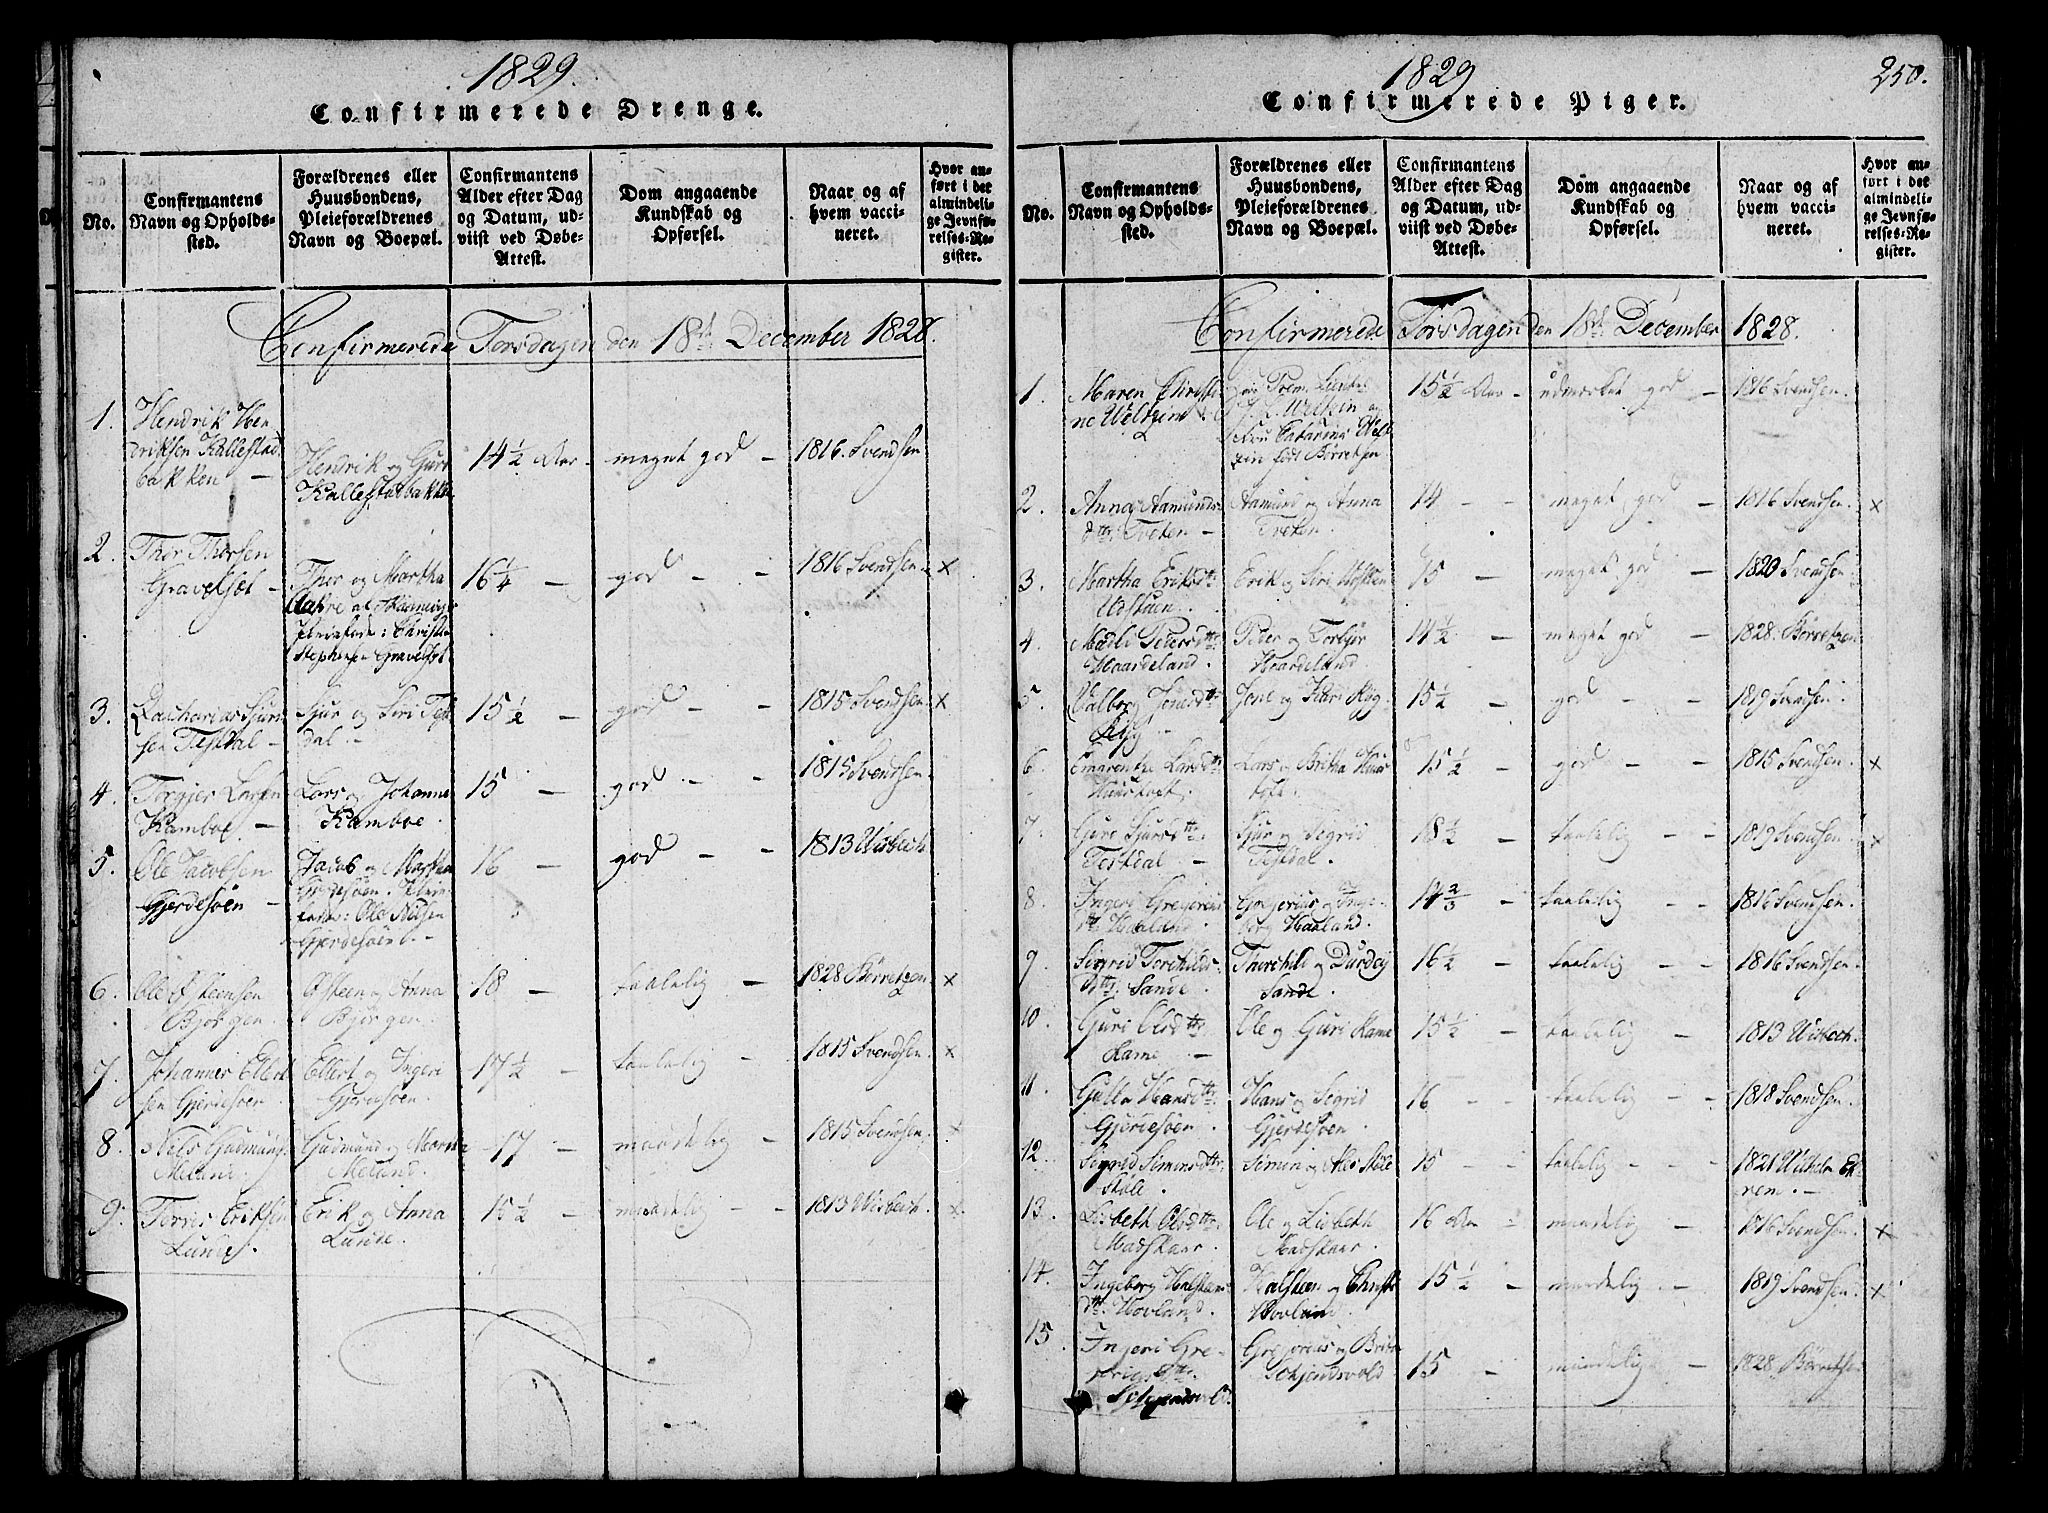 1829.
Confirmerede Drenge.
No.
Confirmantens
Navn og Opholds-
sted.
Forældrenes eller
Huusbondens,
Pleieforældrenes
Navn og Boepæl.
Confirmantens
Alder efter Dag
og Datum, ud-
viist ved Døbe-
Attest.
Dom angaaende
Kundskab og
Opførsel.
Naar og af
hvem vacci-
neret.
Hvor an-
ført i det
almindeli-
ge Jevnfø-
relses-Re-
gister.
Confirmerede Torsdagen den 18de December 1828.
1.
Hendrik Hen
driksen Kallestad
bakken —
Hendrik og Guri
Kallestadbakken
14½ Aar - meget god — 1816. Svendsen
2.
Thor Thorsen
Gravelsæt —
Thor og Martha
Aakre af
Christen
Stephensen Gravelsæt
16¼ — god — - 1816 Svendsen - x
3.
Zacharias Sjur
sen Tesdal —
Sjur og Siri Tes
dal. -
15½ — god — - 1815 Svendsen x
4.
Torgjer Larsen
Kamboe —
Lars og Johanne
Kamboe.
15 — god — - 1815 Svendsen.
5.
Ole Jacobsen
Gjerdesøen —
Jacob og Martha
Gjerdesøen. Pleie-
fader: Ole Nilsen
Gjerdesøen. -
16 — god — - 1813 Wisbech
6.
Ole Østeensen
Bjørgen.
Østeen og Anna
Bjørgen.
18 — taalelig — 1828 Børretzen x
7.
Johannes Ellert
sen Gjerdesøen
Ellert og Ingeri
Gjerdesøen.
17½ — taalelig — 1815 Svendsen. x
8.
Nils Gudmunds
Meland.
Gudmund og
Meland.
17 — maadelig — 1815 Svendsen. x
9.
Torris Eriksen
Lunde.
Erik og Anna
Lunde.
15½ — maadelig - - 1813 Wisbech. x
1829
250.
Confirmerede Piger.
No.
Confirmantens
Navn og Opholds-
sted.
Forældrenes eller
Huusbondens,
Pleieforældrenes
Navn og Boepæl.
Confirmantens
Alder efter Dag
og Datum, ud-
viist ved Døbe-
Attest.
Dom angaaende
Kundskab og
Opførsel.
Naar og af
hvem vacci-
neret.
Hvor an-
ført i det
almindeli-
ge Jevnfø-
relses-Re-
gister.
Confirmerede Torsdagen den 18de December 1828.
1.
Maren Christi
ne Weltzin
Weltzin og
Catarina Welt
zin født Børretsen
15½ Aar - udmærket god — 1816 Svendsen
2.
Anna Aamunds
dtr. Tveten —
Aamund og Anna
Tveten.
14 - - meget god — 1816 Svendsen. x
3.
Martha Eriksdtr
Udstuen.
Erik og Siri
15 — meget god — 1820 Svendsen
4.
Madli Pedersdtr
Haardeland.
Peder og Torbjør
Haardeland
14½ — meget god — 1828. Børretzen
5.
Valborg Jonesdtr
Jone og Kari
15½ — god — - 1819 Svendsen.
6.
Emarentze Larsdtr
Huustoft.
Lars og Britha Huus
toft.
15½ — god — - 1815 Svendsen. x
7.
Guro Sjursdtr.
Tesdal. —
Sjur og Sigrid
Tesdal.
18½ — taalelig — - 1819 Svendsen. x
8.
Ingeri Gregorius
dtr. Haaland
Gregorius og Inge
borg Haaland.
14⅔ - taalelig - - 1816 Svendsen.
9.
Sigrid Torchilds-
dtr. Sande.
Thorchild og Durdey
Sande.
16½ - taalelig - - 1816 Svendsen.
10.
Guri Olsdtr.
Rame. —
Ole og Guri Rame
15½ - taalelig — 1813 Wisbech.
11.
Hansdtr.
Gjerdesøen
Hans og Sigrid
Gjerdesøen.
16 - - taalelig - - 1818 Svendsen.
12.
Sigrid Simonsdtr.
Støle.
Simon og Støle
15 - - taalelig — 1821 Wilhelm Ek
rem. -
13.
Lisbeth Olsdtr.
Madskaar.
Ole og Lisbeth
Madskaar.
16 Aar - maadelig — 1816 Svendsen. x
14.
Ingeborg Halsteins
dtr. Hovland.
Halsteen og Christi
Hovland
15½ — maadelig. - 1819 Svendsen x
15.
Ingeri Gre-
Gregorius og Brita
Schjendsvold
15 — maadelig — 1828 Børretsen